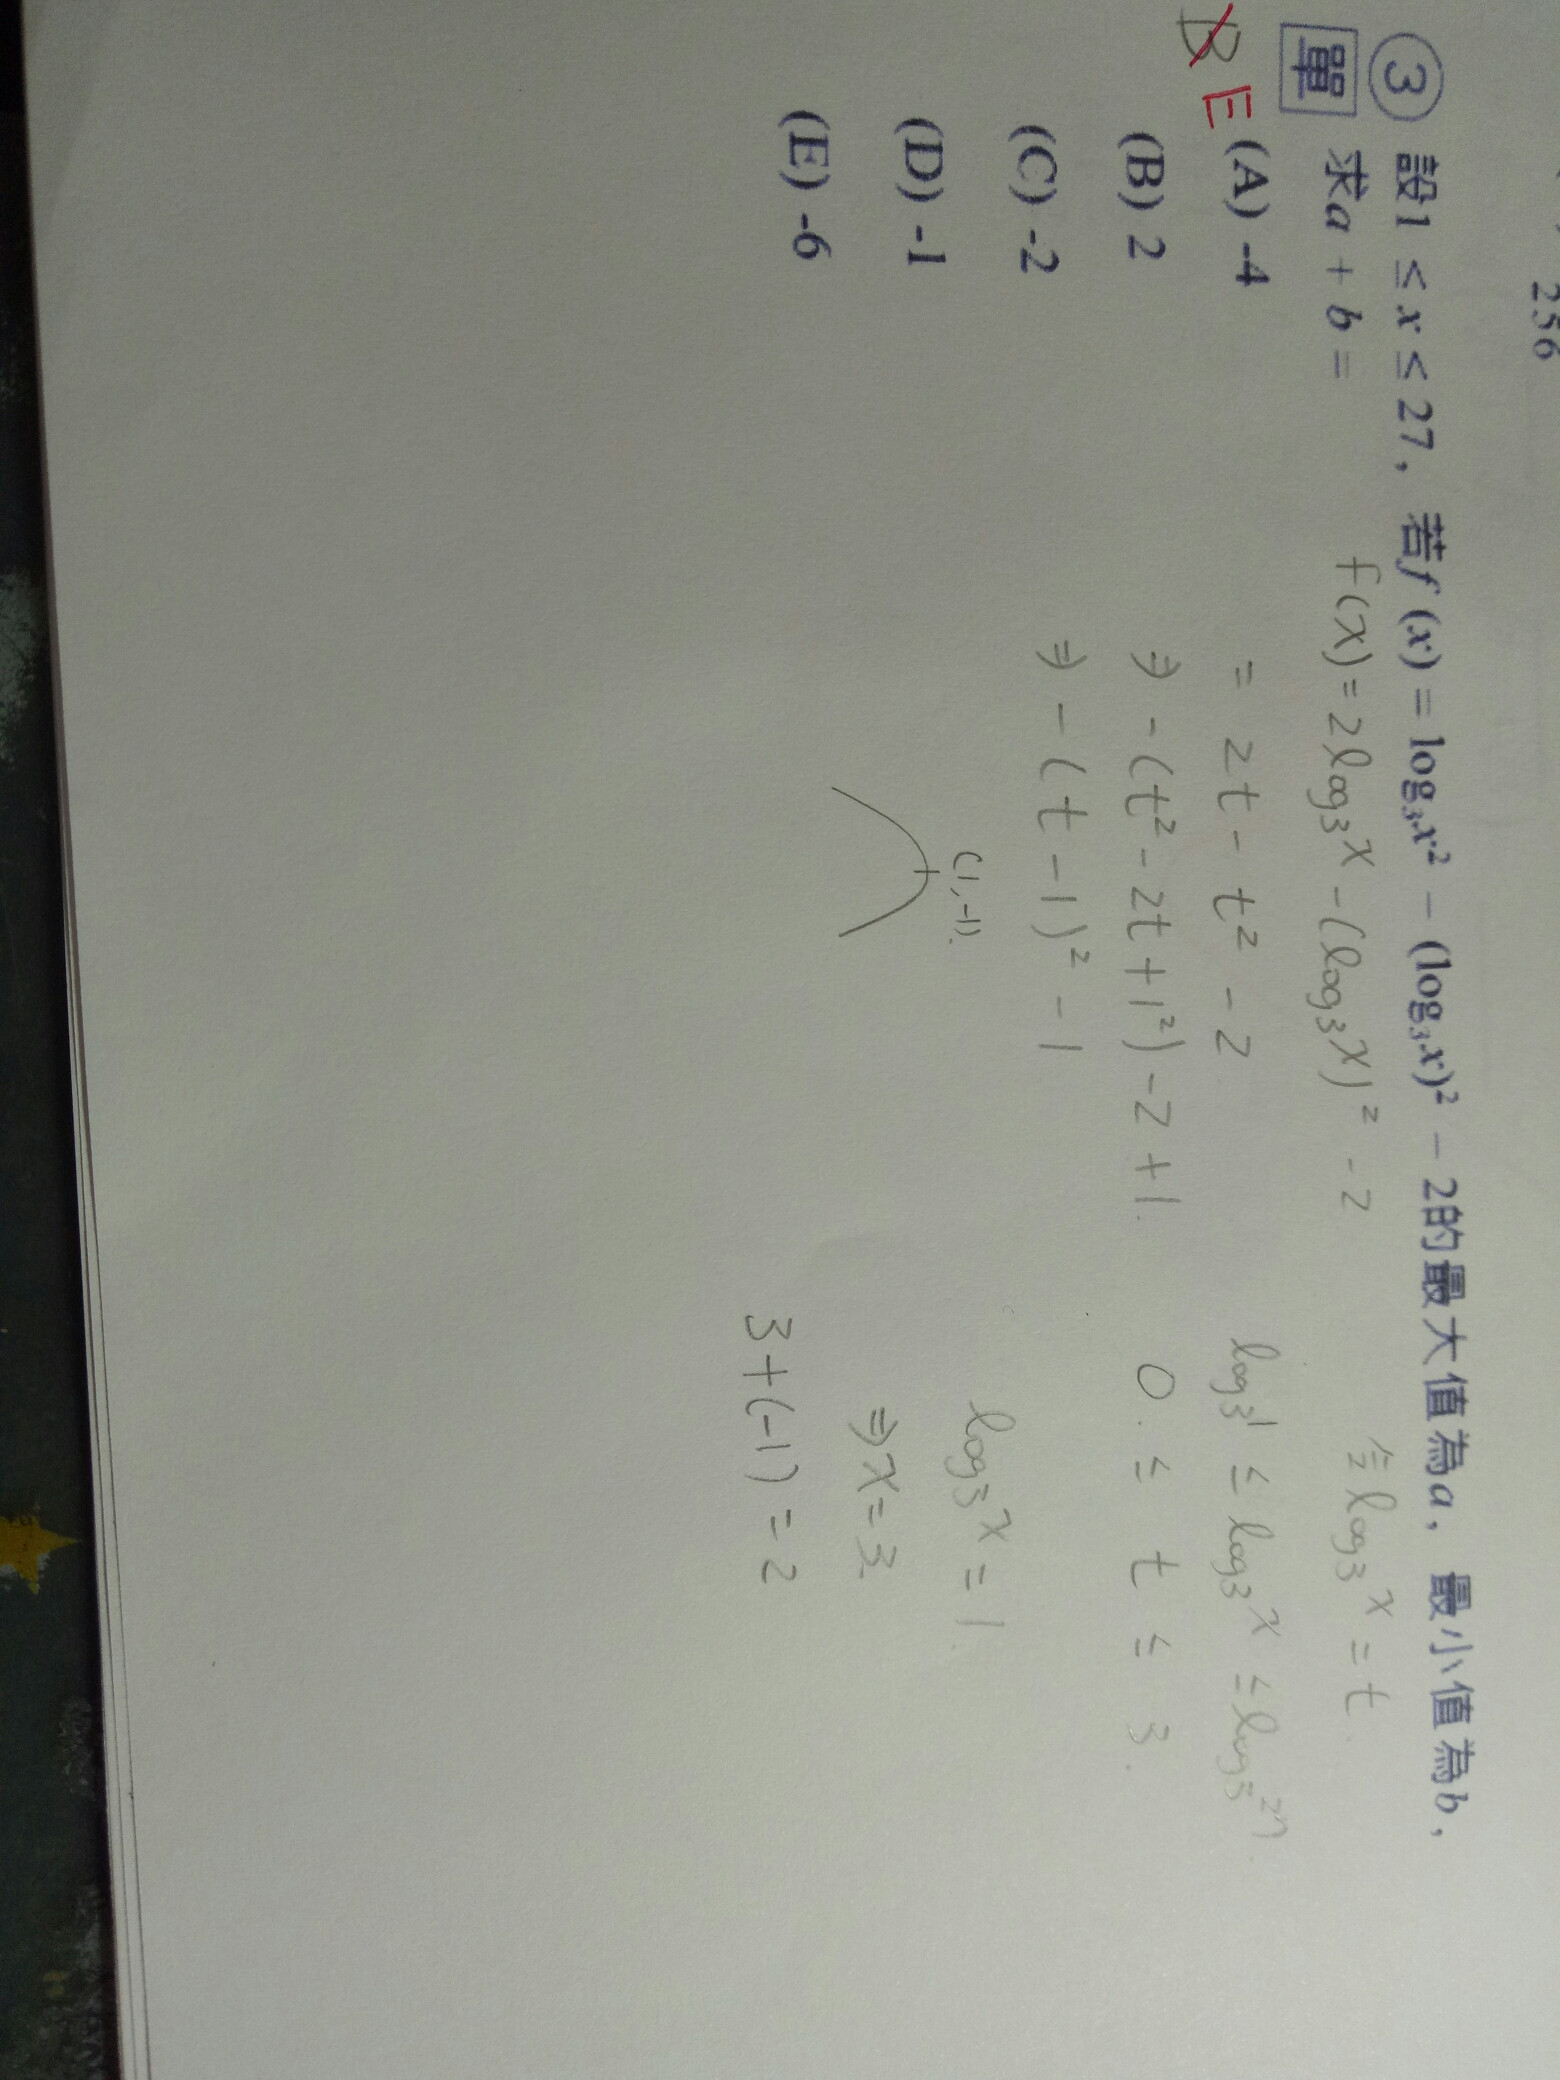 256
③ 設1 ≤ x ≤ 27，若f (x) = log₃x² − (log₃x)² − 2的最大值為a，最小值為b，
單 求a + b =
f(x) = 2log₃x - (log₃x)² - 2 令log₃x = t.
B E
(A) -4
= 2t - t² - 2 log₃1 ≤ log₃x ≤ log₃27
(B) 2
⇒ -(t² - 2t + 1²) - 2 + 1. 0 ≤ t ≤ 3.
(C) -2
⇒ -(t - 1)² - 1
(1, -1). log₃x = 1.
(D) -1
⇒ x = 3.
(E) -6
3 + (-1) = 2